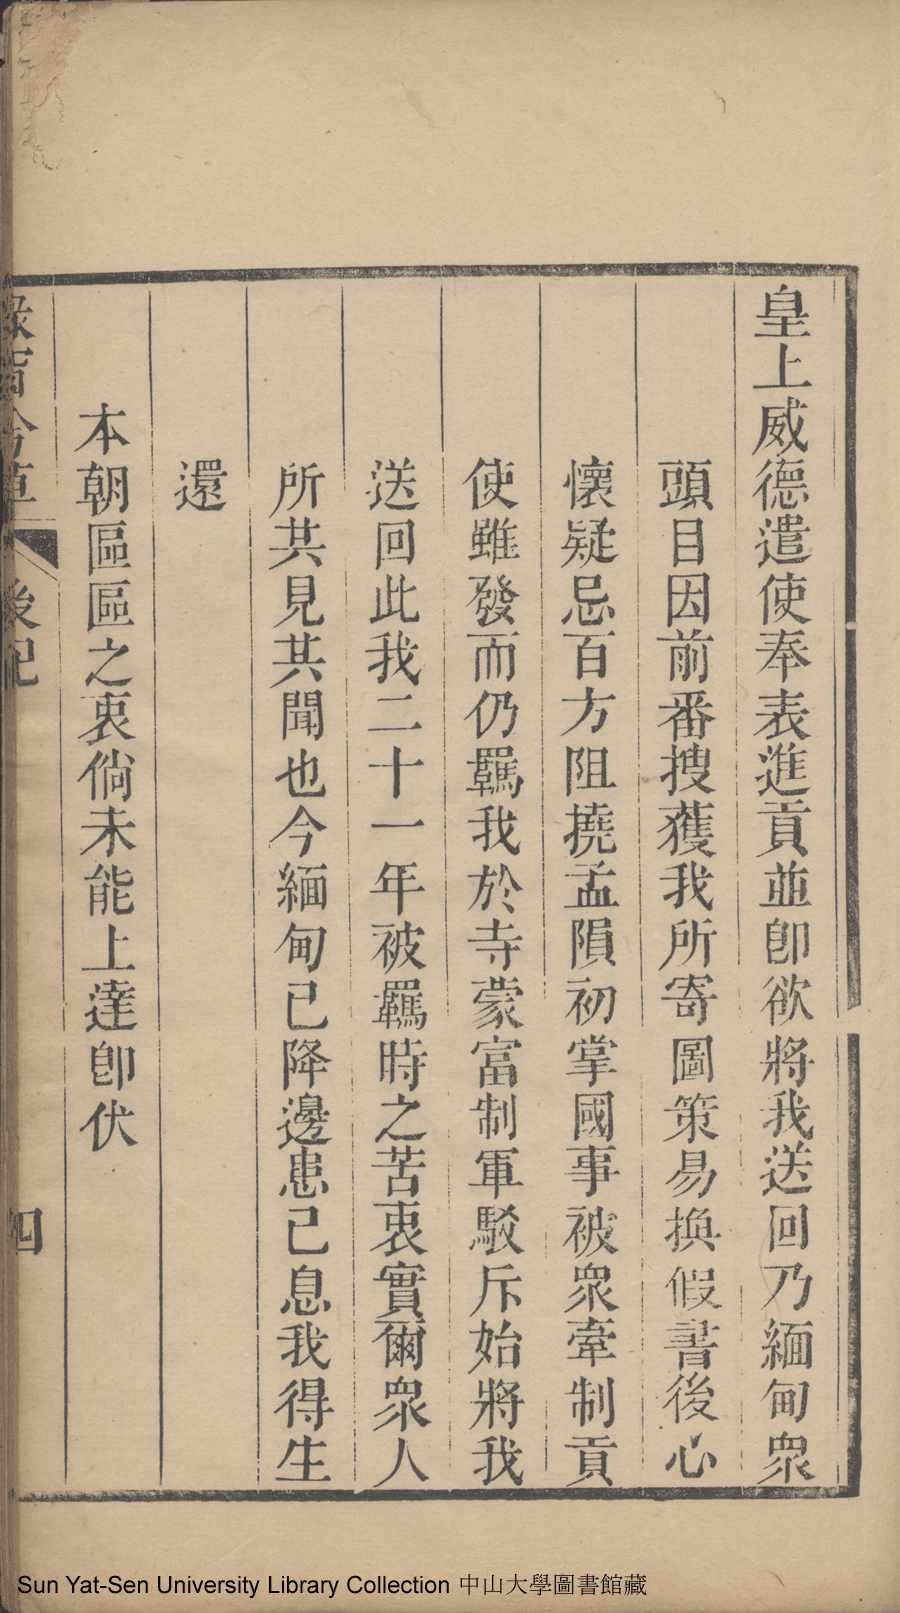 皇上威德遣使奉表進貢並卽欲將我送回乃緬甸衆
頭目因前番搜獲我所寄圖策易換假書後心
懷疑忌百方阻撓孟隕初掌國事被衆牽制貢
使雖發而仍羈我於寺蒙富制軍駁斥始將我
送回此我二十一年被羈時之苦衷實爾衆人
所共見共聞也今緬甸已降邊患已息我得生
還
本朝區區之衷倘未能上達卽伏
後記
四
Sun Yat-Sen University Library Collection 中山大學圖書館藏